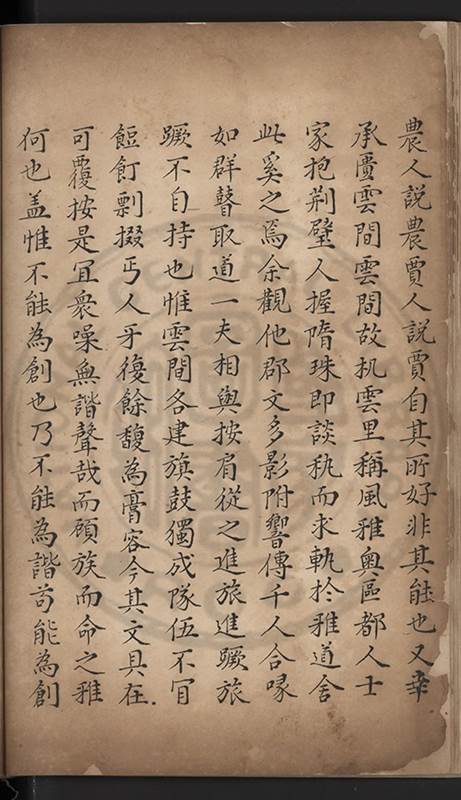 農人說農賈人說賈自其所好非其能也又幸
承匱雲間雲間故机雲里稱風雅奧區都人士
家抱荆璧人握隋珠即談秇而求軌扵雅道舍
此奚之焉余觀他郡文多影附響傳千人合喙
如群瞽取道一夫相與按肩從之進旅進蹶旅
蹶不自持也惟雲間各建旗鼓獨成隊伍不肎
餖飣剽掇丐人牙後餘馥為膏容今其文具在
可覆按是冝衆噪無諧聲哉而顧族而命之雅
何也盖惟不能為創也乃不能為諧苟能為創